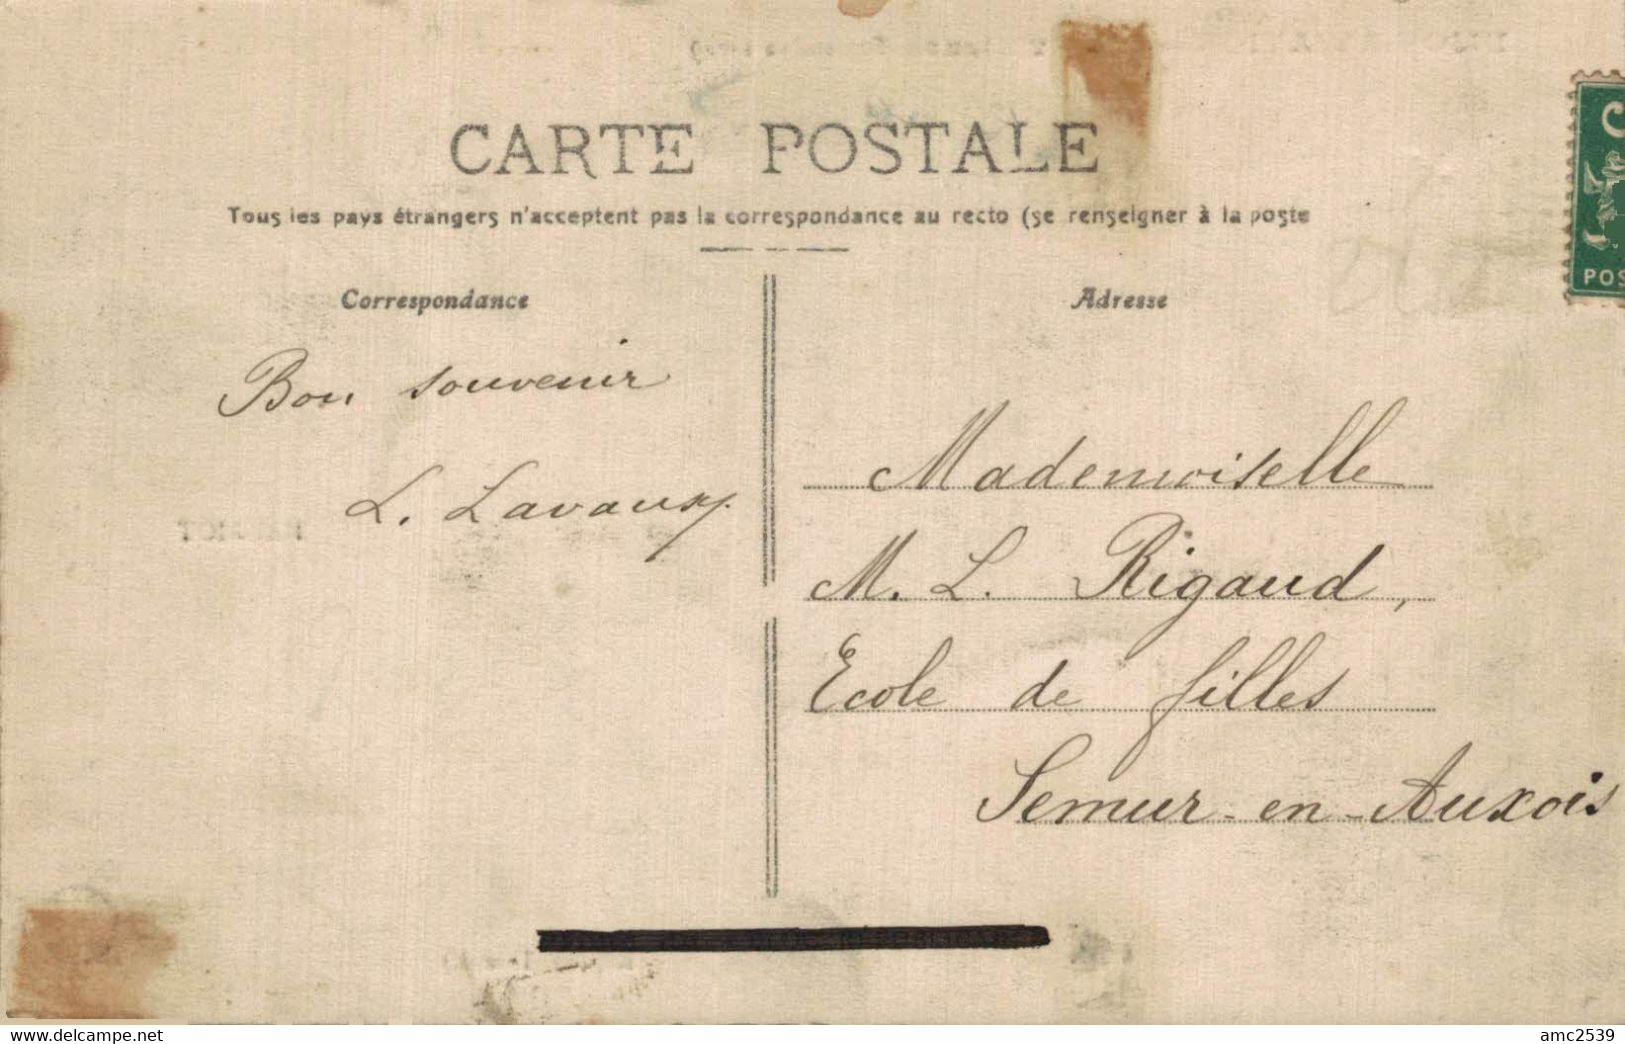 CARTE POSTALE
Tous les pays étrangers n'acceptent pas la correspondance au recto (se renseigner à la poste
Correspondance
Adresse
Bon souvenir
L. Lavaux
Mademoiselle
M. L. Rigaud,
Ecole de filles
Semur-en-Auxois
POS
https://www.delcampe.net
amc2539